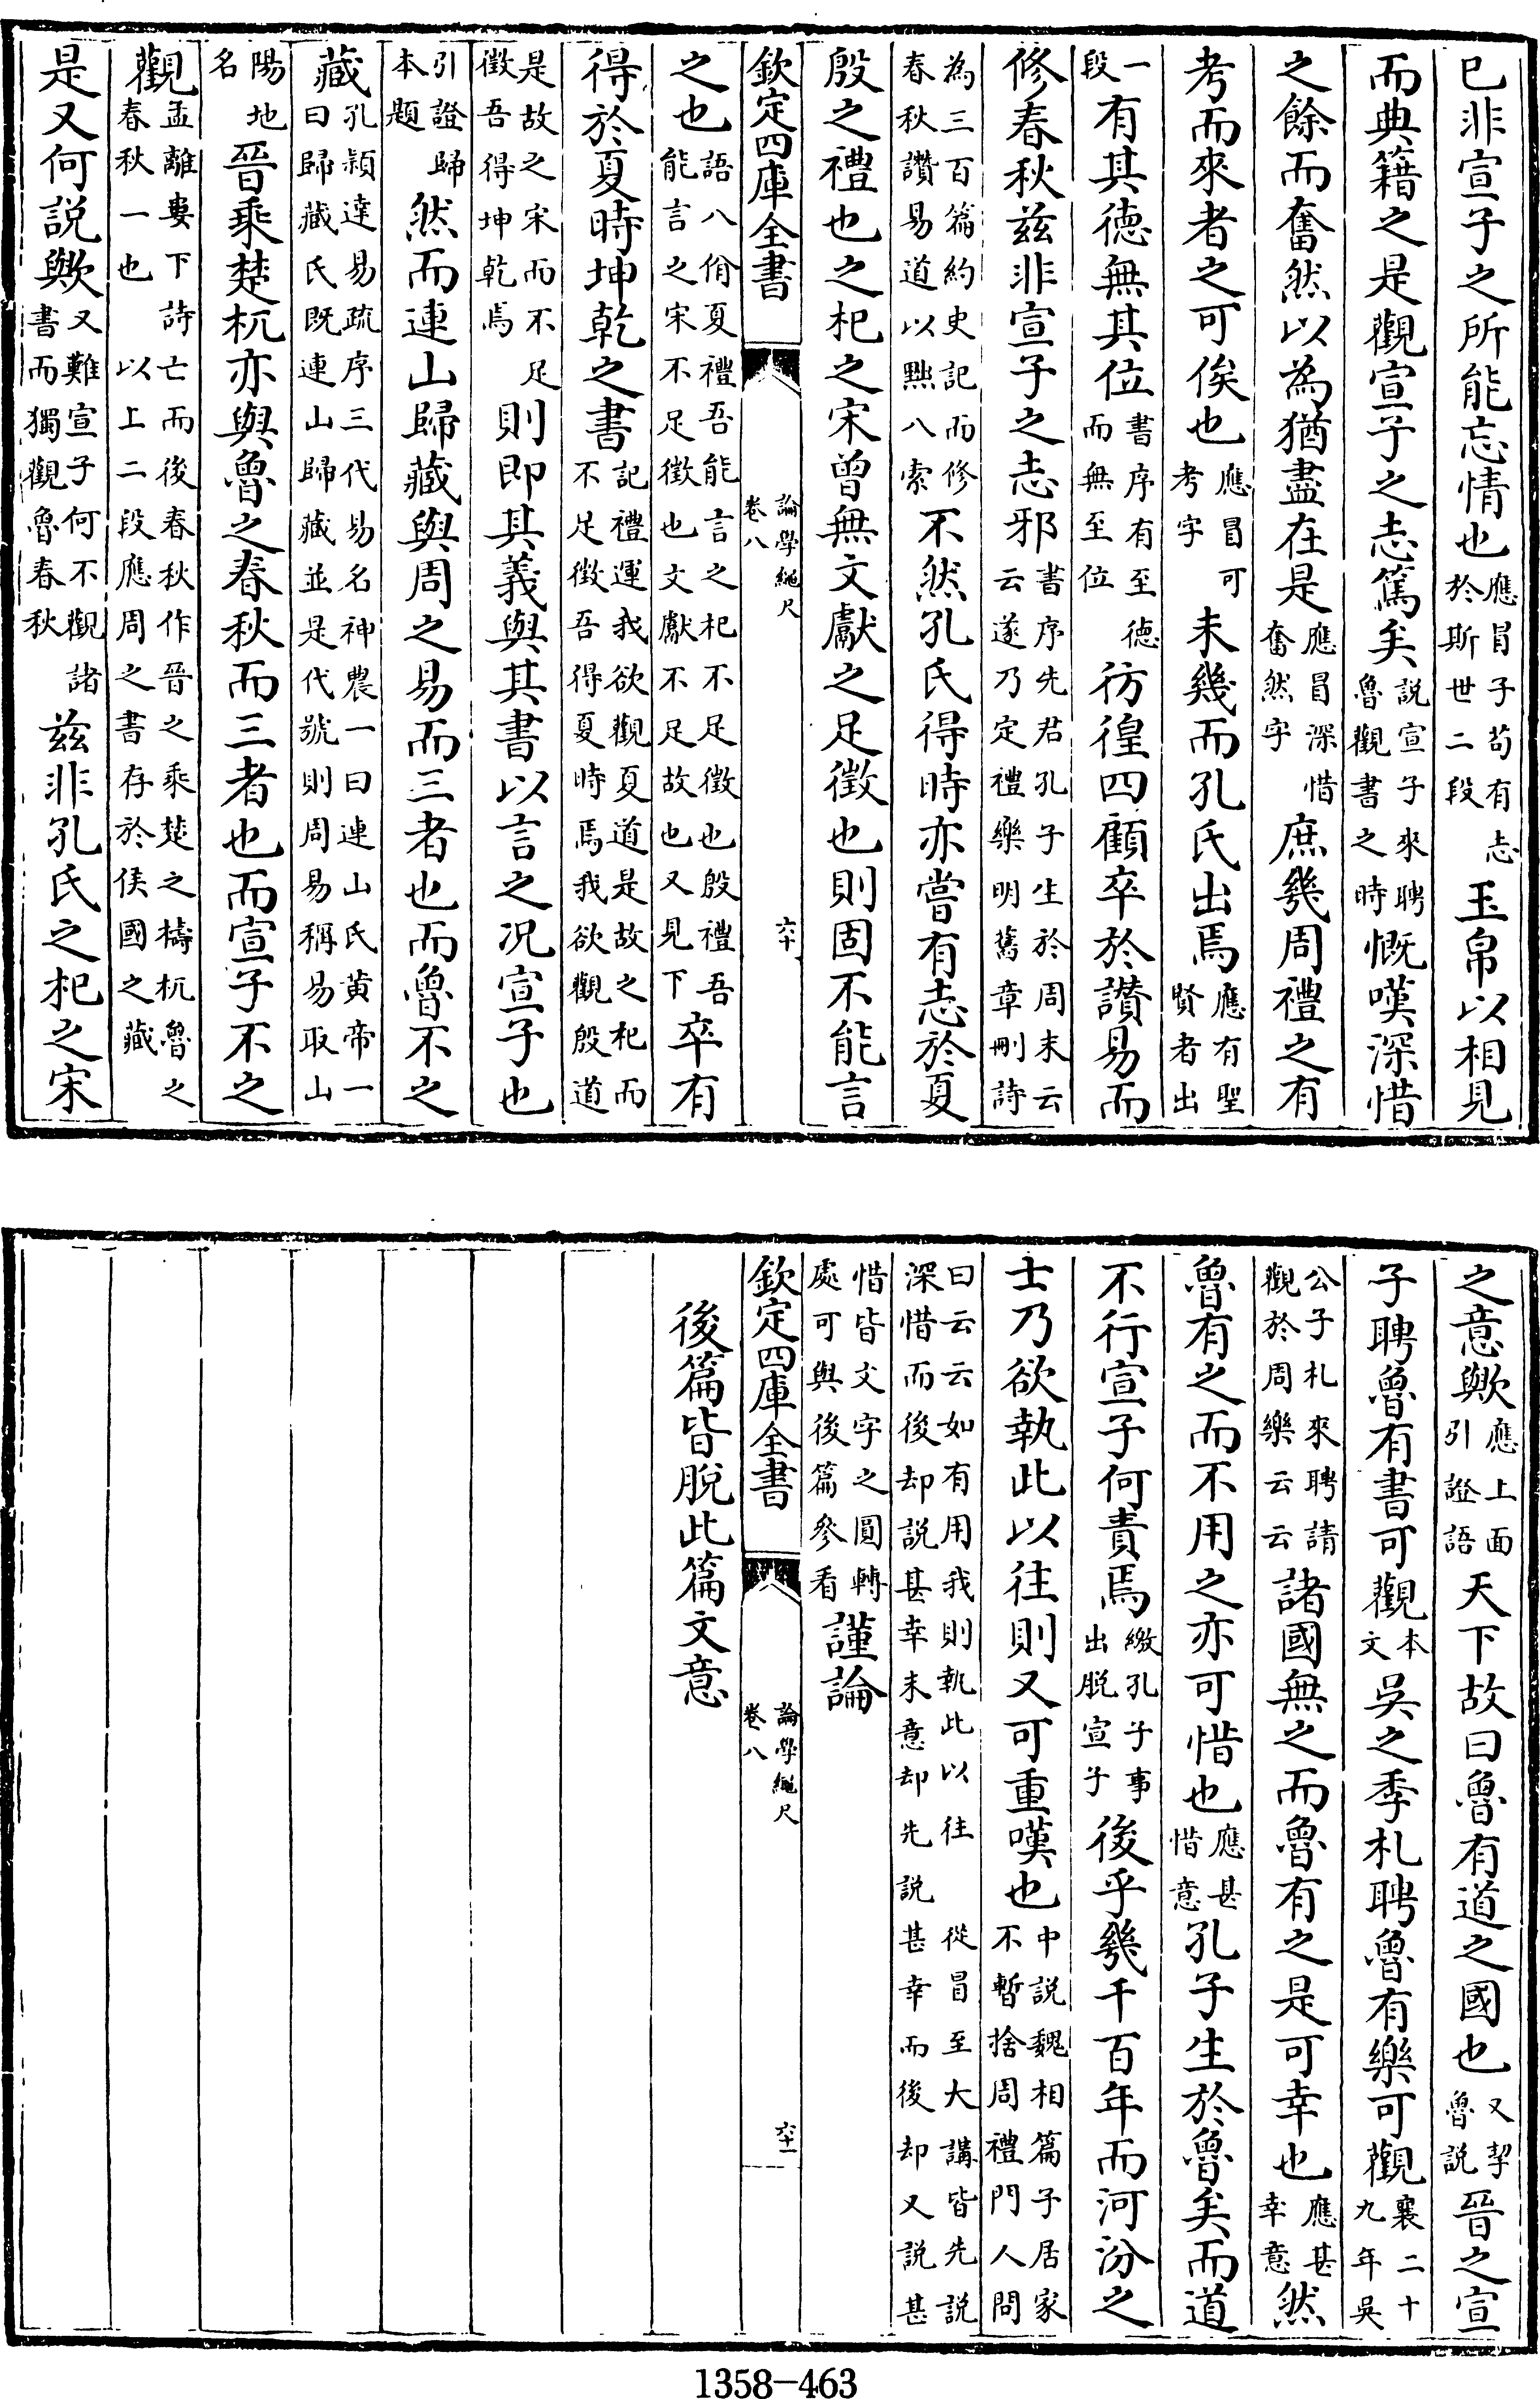 已非宣子之所能忘情也應冒子茍有志於斯世二段玉帛以相見
而典籍之是觀宣子之志篤矣說宣子來聘魯觀書之時慨嘆深惜
之餘而奮然以為猶盡在是應冒深惜奮然字庶幾周禮之有
考而來者之可俟也應冒可考字未幾而孔氏出焉應有聖賢者出
一段有其德無其位書序有至德而無至位彷徨四顧卒於讃易而
修春秋兹非宣子之志邪書序先君孔子生於周末云云遂乃定禮樂明舊章刪詩
為三百篇約史記而修春秋讚易道以黜八索不然孔氏得時亦嘗有志於夏
殷之禮也之杞之宋曾無文獻之足徵也則固不能言
欽定四庫全書
論學繩尺
卷八
六十
之也語八佾夏禮吾能言之杞不足徵也殷禮吾能言之宋不足徵也文獻不足故也又見下卒有
得於夏時坤乾之書記禮運我欲觀夏道是故之杞而不足徵吾得夏時焉我欲觀殷道
是故之宋而不足徵吾得坤乾焉則即其義與其書以言之况宣子也
引證歸本題然而連山歸藏與周之易而三者也而魯不之
藏孔頴達易疏序三代易名神農一曰連山氏黄帝一曰歸藏氏既連山歸藏並是代號則周易稱易取山
陽地名晉乘楚杌亦與魯之春秋而三者也而宣子不之
觀孟離婁下詩亡而後春秋作晉之乘楚之檮杌魯之春秋一也以上二段應周之書存於侯國之藏
是又何說歟又難宣子何不觀諸書而獨觀魯春秋兹非孔氏之杞之宋
之意歟應上面引證語天下故曰魯有道之國也又挈魯說晉之宣
子聘魯有書可觀本文吳之季札聘魯有樂可觀襄二十九年吳
公子札來聘請觀於周樂云云諸國無之而魯有之是可幸也應甚幸意然
魯有之而不用之亦可惜也應甚惜意孔子生於魯矣而道
不行宣子何責焉繳孔子事出脱宣子後乎幾千百年而河汾之
士乃欲執此以往則又可重嘆也中說魏相篇子居家不暫捨周禮門人問
曰云云如有用我則執此以往從冒至大講皆先說深惜而後却說甚幸末意却先說甚幸而後却又說甚
惜皆文字之圓轉處可與後篇參看謹論
欽定四庫全書
論學繩尺
卷八
六十一
後篇皆脫此篇文意
1358-463